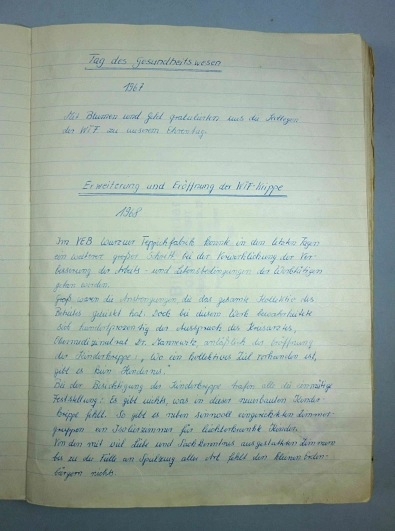 Tag des Gesundheitswesen
1967
Mit Blumen und Geld gratulierten uns die Kollegen
der WTF zu unserem Ehrentag.
Erweiterung und Eröffnung der WTF-Krippe
1968
Im VEB Wurzner Teppichfabrik konnte in den letzten Tagen
ein weiterer großer Schritt bei der Verwirklichung der Ver-
besserung der Arbeits- und Lebensbedingungen der Werktätigen
gegangen werden.
Groß waren die Anstrengungen, die das gesamte Kollektiv des
Betriebes gemacht hat. Doch bei diesem Werk bewahrheitete
sich hundertprozentig der Ausspruch des Kreisarztes,
Obermedizinalrat Dr. Mannewitz, anläßlich der Eröffnung
der Kinderkrippe: "Wo ein kollektives Ziel vorhanden ist,
gibt es kein Hindernis."
Bei der Besichtigung der Kinderkrippe trafen alle die einmütige
Feststellung: Es gibt nichts, was in dieser neuerbauten Kinder-
krippe fehlt. So gibt es neben sinnvoll eingerichteten Zimmer-
gruppen ein Isolierzimmer für leichterkrankte Kinder.
Von den mit viel Liebe und Sachkenntnis ausgestatteten Zimmern
bis zu der Fülle an Spielzeug aller Art fehlt den kleinen Erden-
bürgern nichts.